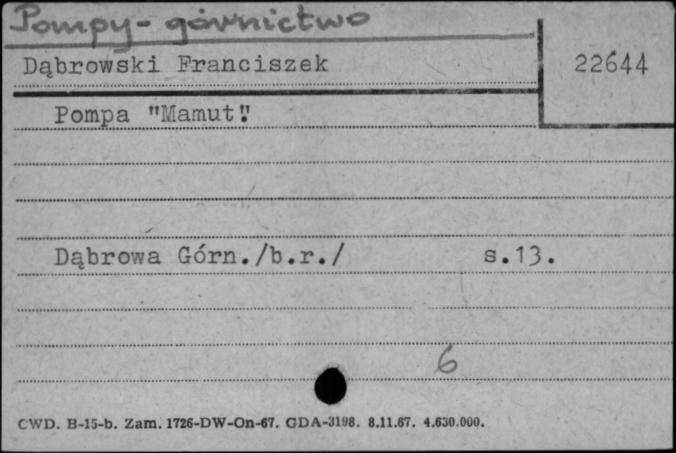 Pompy - górnictwo
Dąbrowski Franciszek
22644
Pompa "Mamut".
Dąbrowa Górn./b.r./ s.13.
6
CWD. B-15-b. Zam. 1726-DW-On-67. GDA-3198. 8.11.67. 4.630.000.